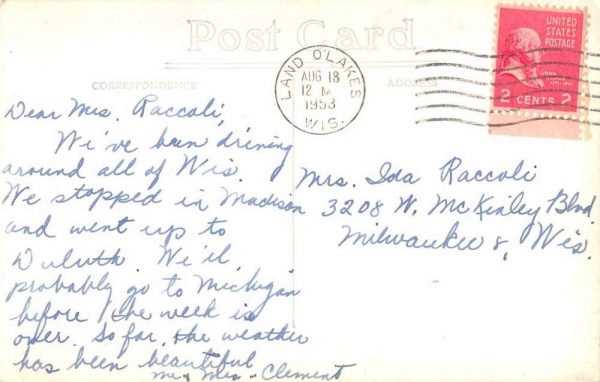 Post Card
CORRESPONDENCE
ADDRESS
LAND O'LAKES
AUG 18
12 M
1953
WIS.
UNITED
STATES
POSTAGE
2 CENTS 2
Dear Mrs. Raccoli,
We've been driving
around all of Wis.
We stopped in Madison
and went up to
Duluth. We'll
probably go to Michigan
before the week is
over. So far, the weather
has been beautiful
Mr & Mrs - Clement
Mrs. Ida Raccoli
3208 W. McKinley Blvd.
Milwaukee 8, Wis.